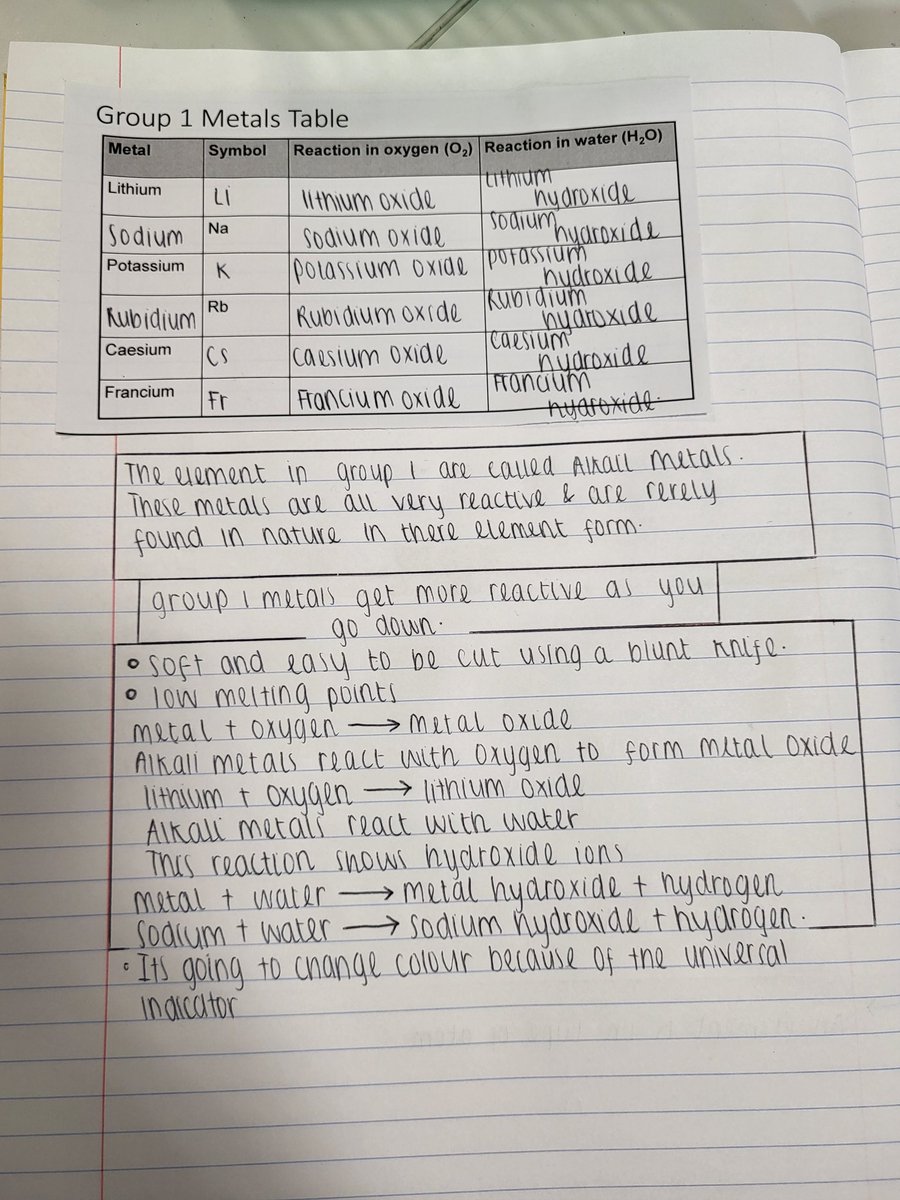 Group 1 Metals Table
Metal Symbol Reaction in oxygen (O₂) Reaction in water (H₂O)
Lithium Li lithium oxide Lithium hydroxide
Sodium Na Sodium oxide Sodium hydroxide
Potassium K potassium oxide potassium hydroxide
Rubidium Rb Rubidium oxide Rubidium hydroxide
Caesium Cs Caesium oxide Caesium hydroxide
Francium Fr Francium oxide Francium hydroxide.
The element in group 1 are called Alkali Metals.
These metals are all very reactive & are rerely
found in nature in there element form.
group 1 metals get more reactive as you
go down.
• Soft and easy to be cut using a blunt knife.
• low melting points
metal + oxygen → metal oxide
Alkali metals react with oxygen to form metal oxide
lithium + oxygen → lithium oxide
Alkali metals react with water
This reaction shows hydroxide ions
metal + water → metal hydroxide + hydrogen
Sodium + water → sodium hydroxide + hydrogen.
• Its going to change colour because of the universal
indicator